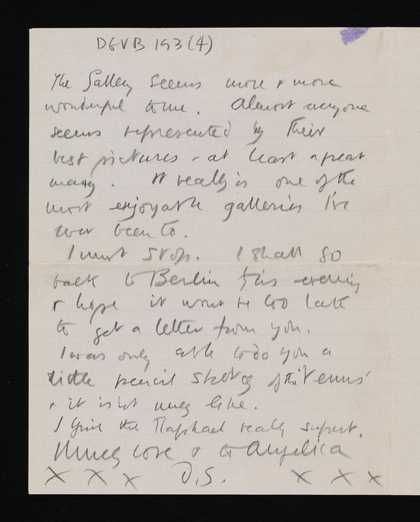 DGVB 193 (4)
The Gallery seems more & more
wonderful to me. Almost everyone
seems represented by their
best pictures - at least a great
many. It really is one of the
most enjoyable galleries I've
ever been to.
I must stop. I shall go
back to Berlin this evening
& hope it wont be too late
to get a letter from you.
I was only able to do you a
little pencil sketch of the 'Venus'
& it is not very like.
I find the Raphael really superb.
Much love & to Angelica
X X X D.G. X X X